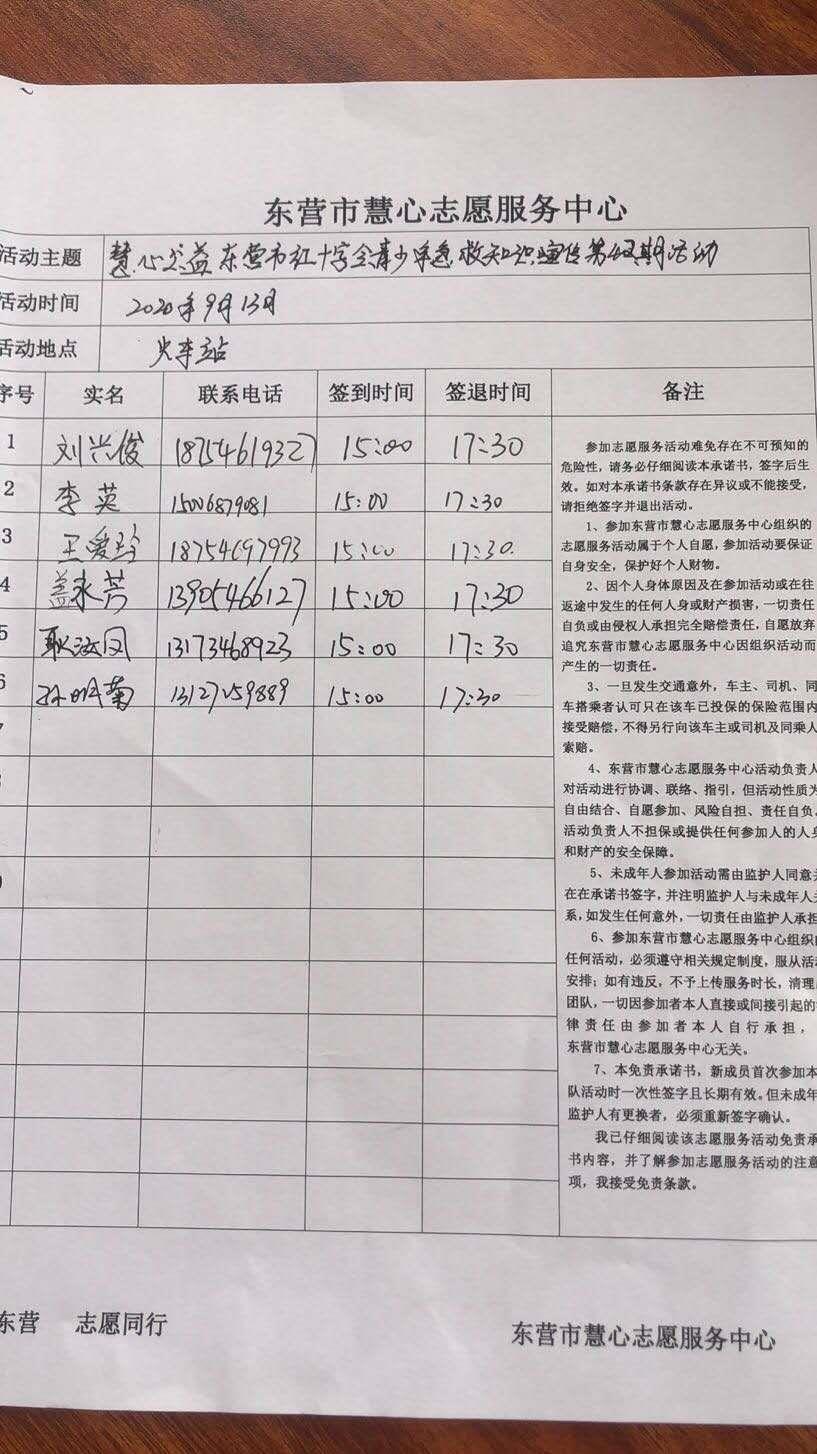 东营市慧心志愿服务中心
活动主题 慧心公益东营市红十字会青少年急救知识宣传第 期活动
活动时间 2020年9月13日
活动地点 火车站
序号 实名 联系电话 签到时间 签退时间 备注
1 刘兴俊 18754619327 15:00 17:30
2 李英 15006879081 15:00 17:30
3 王爱玲 18754697993 15:00 17:30
4 盖永芳 13905466127 15:00 17:30
5 耿 凤 13173468923 15:00 17:30
6 孙明菊 13127259889 15:00 17:30
参加志愿服务活动难免存在不可预知的
危险性，请务必仔细阅读本承诺书，签字后生
效。如对本承诺书条款存在异议或不能接受，
请拒绝签字并退出活动。
1、参加东营市慧心志愿服务中心组织的
志愿服务活动属于个人自愿，参加活动要保证
自身安全，保护好个人财物。
2、因个人身体原因及在参加活动或在往
返途中发生的任何人身或财产损害，一切责任
自负或由侵权人承担完全赔偿责任，自愿放弃
追究东营市慧心志愿服务中心因组织活动而
产生的一切责任。
3、一旦发生交通意外，车主、司机、同
车搭乘者认可只在该车已投保的保险范围内
接受赔偿，不得另行向该车主或司机及同乘人
索赔。
4、东营市慧心志愿服务中心活动负责人
对活动进行协调、联络、指引，但活动性质为
自由结合、自愿参加、风险自担、责任自负。
活动负责人不担保或提供任何参加人的人身
和财产的安全保障。
5、未成年人参加活动需由监护人同意并
在在承诺书签字，并注明监护人与未成年人关
系，如发生任何意外，一切责任由监护人承担
6、参加东营市慧心志愿服务中心组织的
任何活动，必须遵守相关规定制度，服从活动
安排；如有违反，不予上传服务时长，清理出
团队，一切因参加者本人直接或间接引起的
律责任由参加者本人自行承担，
东营市慧心志愿服务中心无关。
7、本免责承诺书，新成员首次参加本
队活动时一次性签字且长期有效。但未成年
监护人有更换者，必须重新签字确认。
我已仔细阅读该志愿服务活动免责承
书内容，并了解参加志愿服务活动的注意
项，我接受免责条款。
东营 志愿同行
东营市慧心志愿服务中心